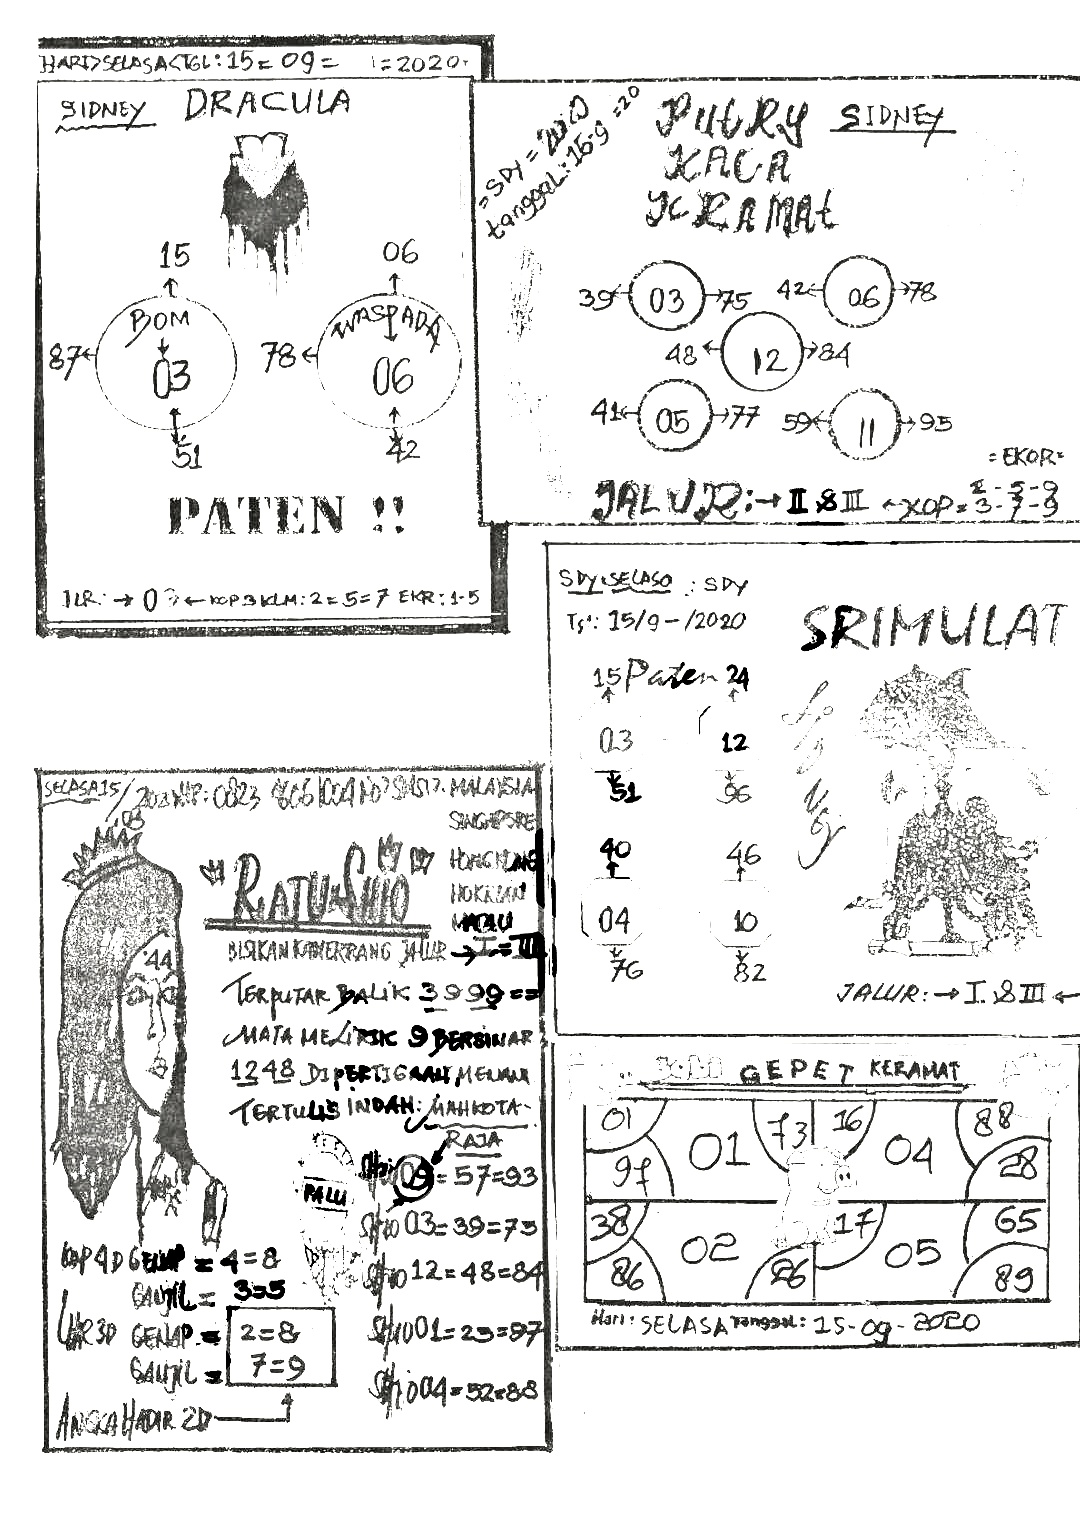 HARI>SELASA<TGL: 15= 09= 2020
SIDNEY DRACULA
15 06
BOM WASPADA
87 03 78 06
51 42
PATEN !!
JLR: → 03 ← KOP 3 KLM: 2=5=7 EKR: 1-5
=SDY =
tanggal: 15-9 =20
PUtRY SIDNEY
KACA
KERAMAt
39 03 75 42 06 78
48 12 84
41 05 77 59 11 95
=EKOR=
JALUR: → II & III ← KOP = 3-7-9
SDY SELASO : SDY
Tgl: 15/9-/2020
SRIMULAT
15 Paten 24
03 12
51 96
40 46
04 10
76 82
JALUR: → I & III ←
SELASA 15/
MALAYSIA
RATU SHIO
JALUR → I = III
TERPUTAR BALIK 3999 ==
MATA MELIRIK 9 BERSINAR
1248 DIPERTIGAAN
TERTULIS INDAH: MAHKOTA-
RAJA
44
PALU
SHIO 09 = 57=93
SHIO 03=39=73
SHIO 12=48=84
SHIO 01=23=97
SHIO 04=52=88
KOP 4D GENAP = 4=8
GANJIL = 3=5
GENAP = 2=8
GANJIL = 7=9
ANGKA HADIR 2D
GEPET KERAMAT
01 01 73 16 04 88
97 28
38 02 17 05 65
86 26 89
Hari: SELASA Tanggal: 15-09-2020